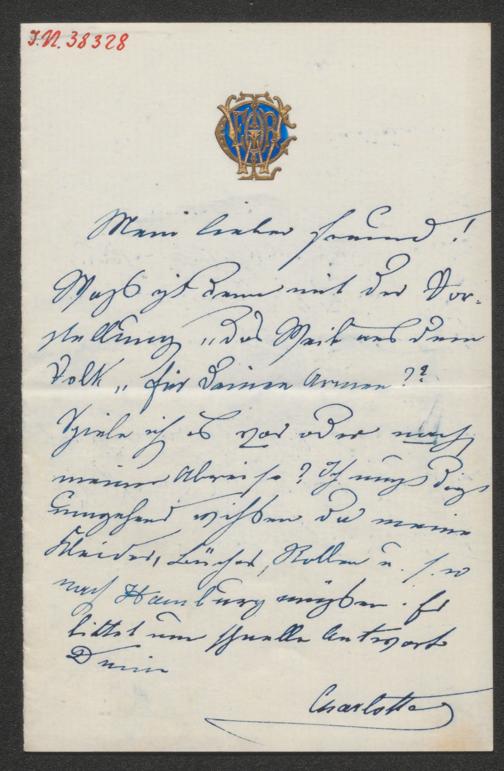 J.N. 38328
Mein lieber Freund!
Was ist denn mit der Vor-
stellung „Das Weib aus dem
Volk„ für Deinen Armen??
Spiele ich es vor oder nach
meiner Abreise? Ich muß dies
umgehend wissen da meine
Kleider, Bücher, Rollen u. s. w
nach Hamburg müssen. Es
bittet um schnelle Antwort
Deine
Charlotte